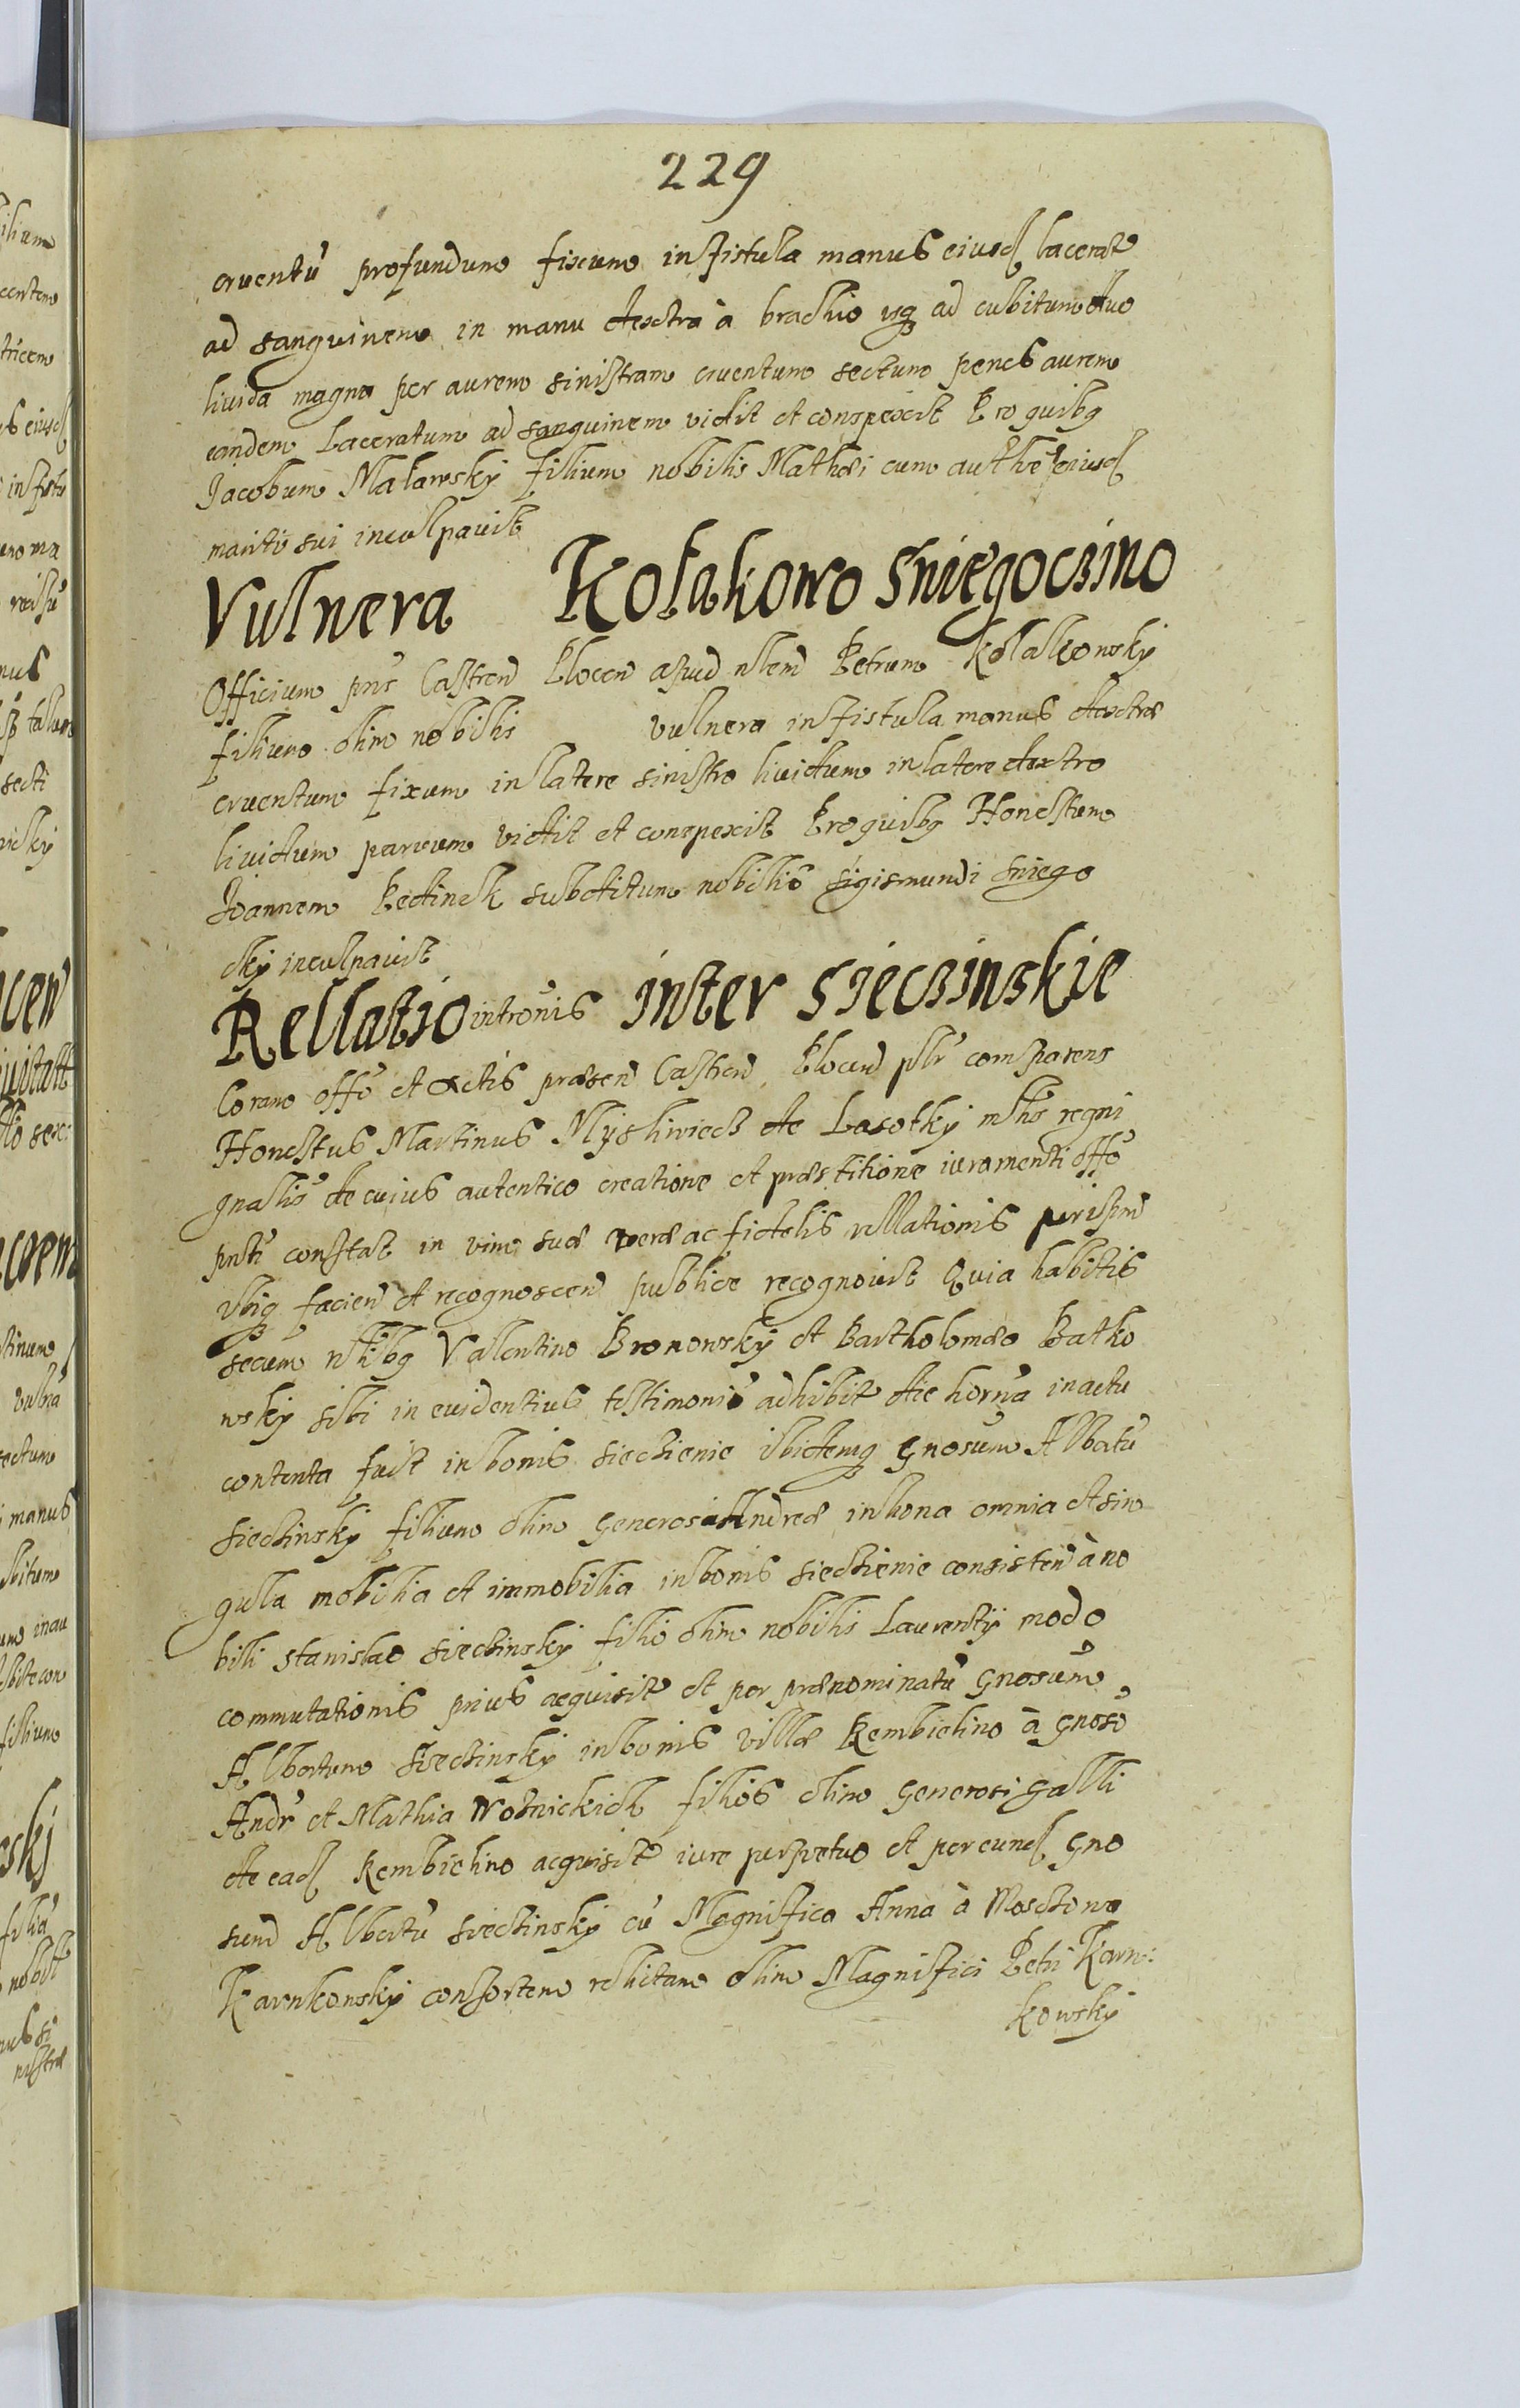 229
cruentũ profundum fixum in fistula manus eiusd lacerat
ad sanguinem in manu dextra à brachio usq ad cubitum duo
livida magna per aurem sinistram cruentum sectum penes aurem
eandem Laceratum ad sanguinem vidit et conspexit Pro quibq
Jacobum Malawsky filium nobilis Mathæi cum eiusd
mariti sui inculpavit
Vulnera Kołakowo Sniegoczino
Officium pns Castren Plocen apud nlem Petrum Kołakowsky
filium olim nobilis vulnera in fistula manus dextræ
cruentum fixum in latere sinistro lividum in latere dextro
lividum parvum vidit et conspexit Pro quibq Honestum
Joannem subditum nobilis Sigismundi Sniego
cky inculpavit
Rellatio intronis inter Sieczinskie
Coram offo et actis præsen Castren Plocen plr comparens
Honestus Martinus Mysliwiecz de Lasotky mlis regni
gnalis de cuius autentico creatione et præstitione iuramenti offo
pnti constat in vim suæ veræ ac fidelis rellationis per ipm
ubiq facien et recognoscen publice recognovit Quia habitis
secum nlibq Valentino Brononsky et Bartholomæo Batko
wsky sibi in evidentius testimoniũ adhibit die horna in actu
contenta fuit in bonis Sieczienie ibidemq Gnosum Albertũ
Sieczinsky filium olim Generosi Andreæ in bona omnia et sin
gula mobilia et immobilia in bonis Sieczienie consisten à no
bili Stanislao Sieczinsky filio olim nobilis Laurentij modo
commutationis prius acquisit et per prænominatũ Gnosum
Albertum Sieczinsky in bonis villæ Kembielino à gnoso
Andr et Mathia Wolnickich filios olim Generosi Galli
de ead Kembielino acquisit iure perpetuo et per eund Gno
sum Albertũ Sieczinsky cũ Magnifica Anna à Mosczono
Karnkonsky consortem relictam olim Magnifici Petri Karn:
kowsky